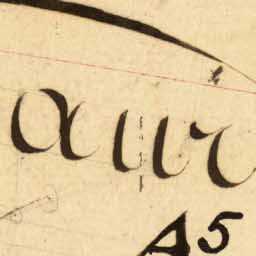 aur
A5